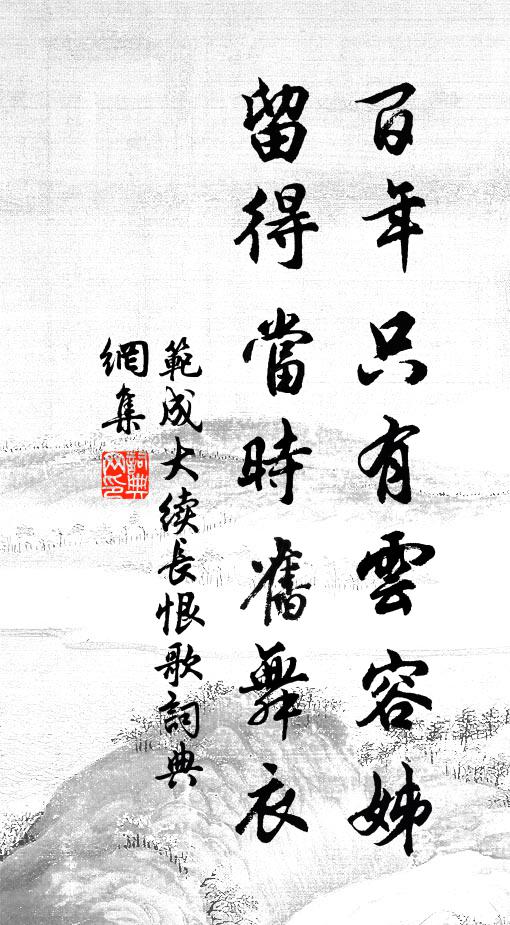 百年只有雲容姊
留得當時舊舞衣
範成大续長恨歌詞典
網集
詞典